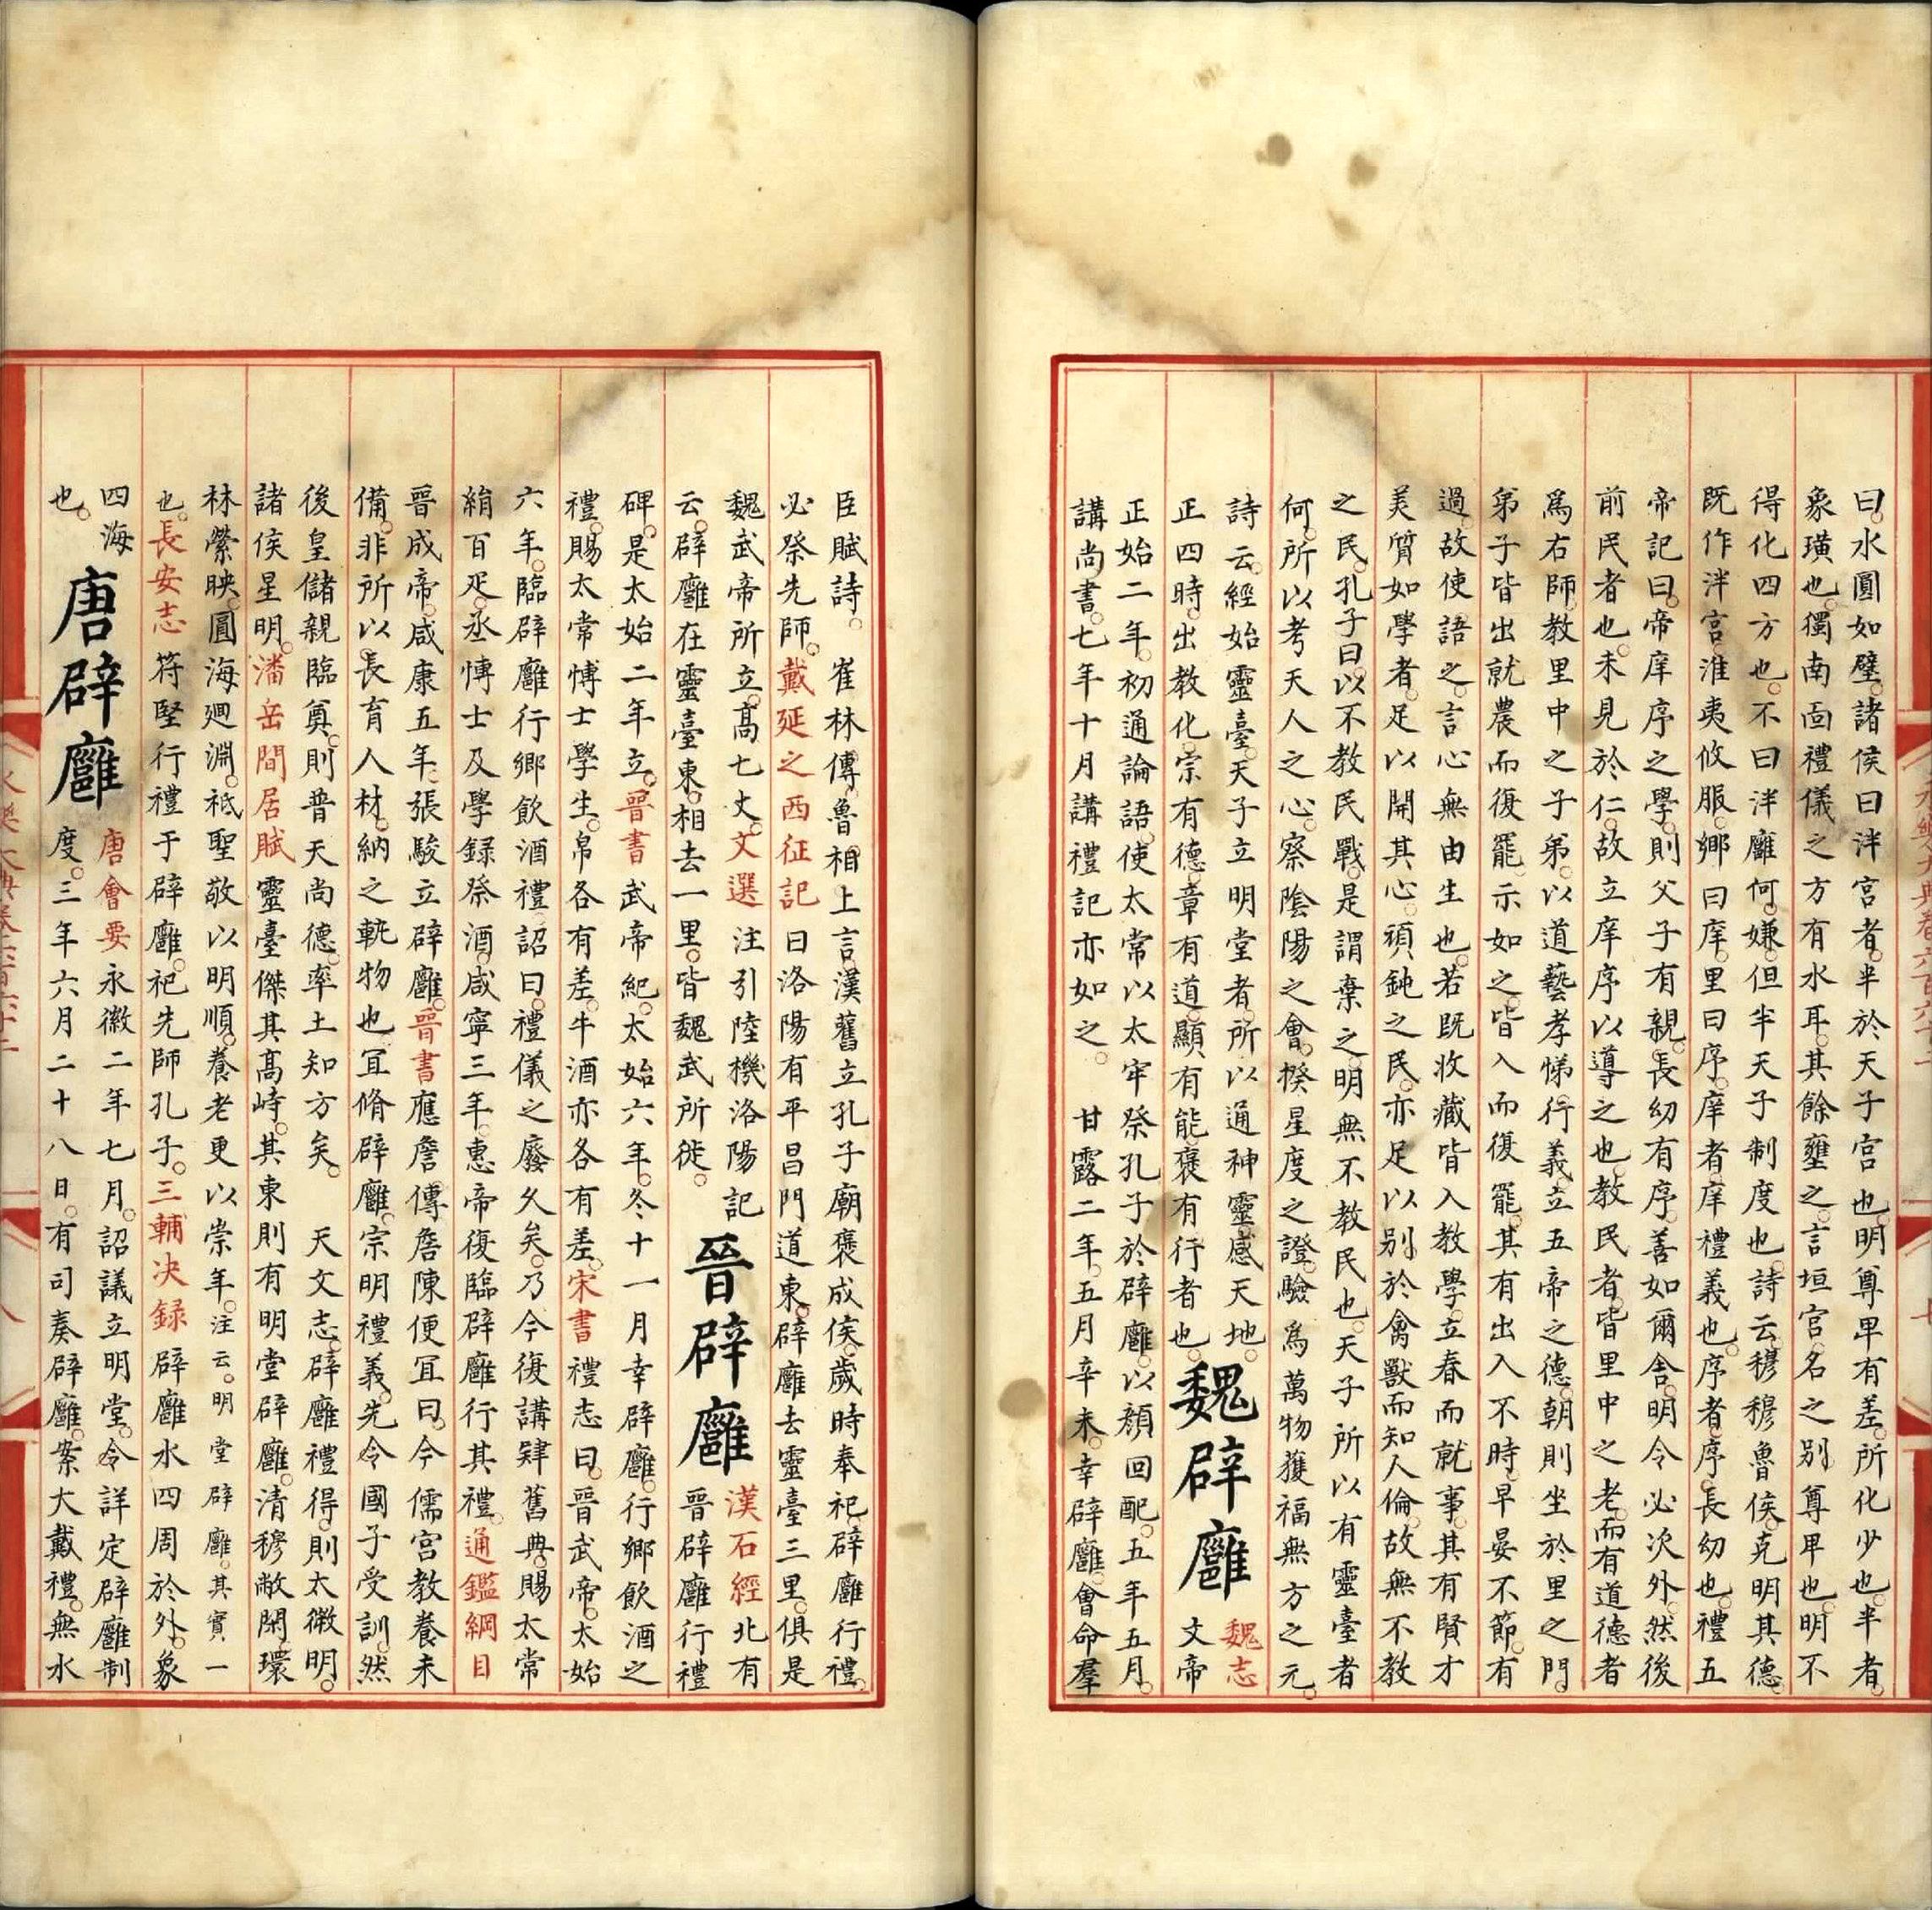 曰水圓如璧諸侯曰泮宮者半於天子宮也明尊卑有差所化少也半者
象璜也獨南靣禮儀之方有水耳其餘壅之言垣宮名之别尊卑也明不
得化四方也不曰泮廱何嫌但半天子制度也詩云穆穆魯侯克明其德
既作泮宮淮夷攸服鄉曰庠里曰序庠者庠禮義也序者序長幼也禮五
帝記曰帝庠序之學則父子有親長幼有序善如爾舍明令必次外然後
前民者也未見於仁故立庠序以導之也教民者皆里中之老而有道德者
爲右師教里中之子弟以道藝孝悌行義立五帝之德朝則坐於里之門
弟子皆出就農而復罷示如之皆入而復罷其有出入不時早晏不節有
過故使語之言心無由生也若既收藏皆入教學立春而就事其有賢才
美質如學者足以開其心頑鈍之民亦足以别於禽獸而知人倫故無不教
之民孔子曰以不教民戰是謂棄之明無不教民也天子所以有靈臺者
何所以考天人之心察陰陽之會揆星度之證驗爲萬物獲福無方之元
詩云經始靈臺天子立明堂者所以通神靈感天地
正四時出教化宗有德章有道顯有能褒有行者也
魏辟廱
魏志
文帝
正始二年初通論語使太常以太牢祭孔子於辟廱以顏回配五年五月
講尚書七年十月講禮記亦如之 甘露二年五月辛未幸辟廱會命羣
臣賦詩 崔林傳魯相上言漢舊立孔子廟褒成侯歲時奉祀辟廱行禮
必祭先師戴延之西征記曰洛陽有平昌門道東辟廱去靈臺三里俱是
魏武帝所立高七丈文選注引陸機洛陽記
云辟廱在靈臺東相去一里皆魏武所徙
晉辟廱
漢石經北有
晉辟廱行禮
碑是太始二年立晉書武帝紀太始六年冬十一月幸辟廱行鄉飲酒之
禮賜太常博士學生帛各有差牛酒亦各有差宋書禮志曰晉武帝太始
六年臨辟廱行鄉飲酒禮詔曰禮儀之廢久矣乃今復講肄舊典賜太常
絹百疋丞博士及學録祭酒咸寧三年惠帝復臨辟廱行其禮通鑑綱目
晉成帝咸康五年張駿立辟廱晉書應詹傳詹陳便宜曰今儒宮教養未
備非所以長育人材納之軌物也宜脩辟廱宗明禮義先令國子受訓然
後皇儲親臨奠則普天尚德率土知方矣 天文志辟廱禮得則太微明
諸侯星明潘岳閒居賦靈臺傑其高峙其東則有明堂辟廱清穆敞閑環
林縈映圓海廻淵祗聖敬以明順養老更以崇年注云明堂辟廱其實一
也長安志符堅行禮于辟廱祀先師孔子三輔决録辟廱水四周於外象
四海
也
唐辟廱
唐會要永徽二年七月詔議立明堂令詳定辟廱制
度三年六月二十八日有司奏辟廱案大戴禮無水